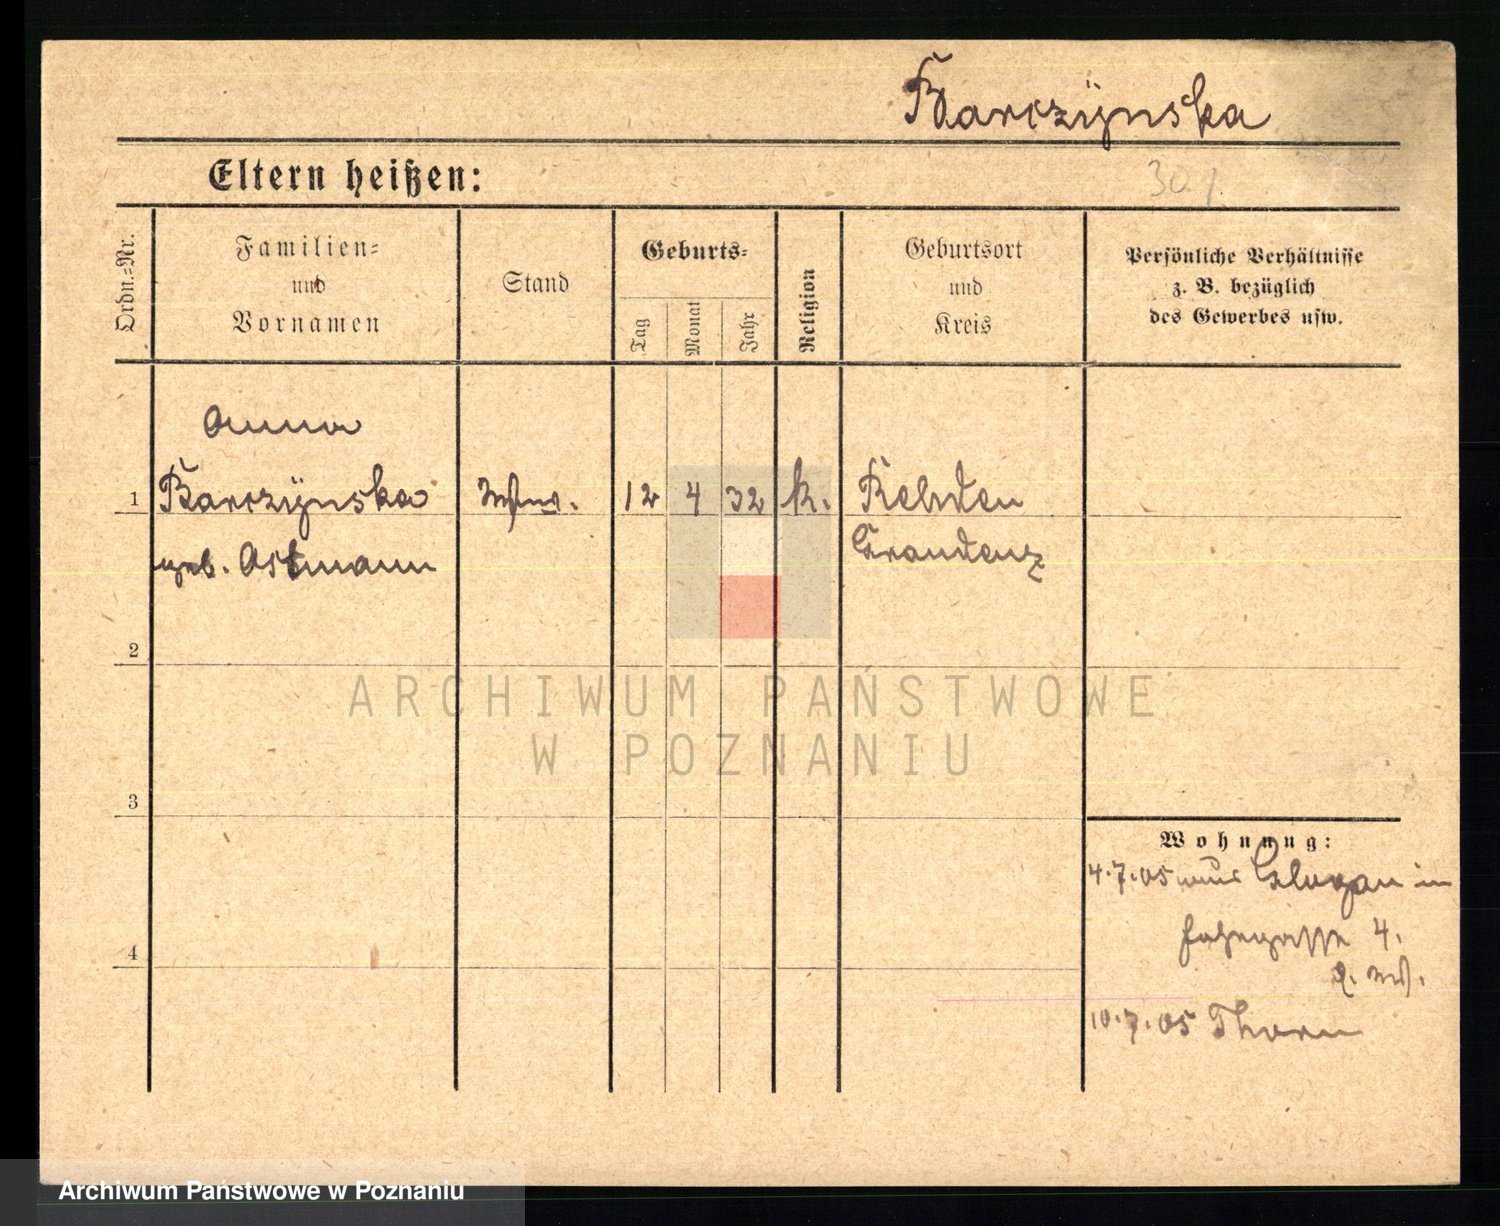 Barczÿnska
Eltern heißen:
30 f.
Ordn.=Nr.
Familien=
und
Vornamen
Stand
Geburts=
Tag
Monat
Jahr
Religion
Geburtsort
und
Kreis
Persönliche Verhältnisse
z. B. bezüglich
des Gewerbes usw.
Anna
1 Barczÿnska Wwe. 12 4 32 k. Rehden
geb. Ostmann Graudenz
2
ARCHIWUM PAŃSTWOWE
W POZNANIU
3
Wohnung:
4.7.05 aus Glogau in
4.
4
10.7.05 Thorn
Archiwum Państwowe w Poznaniu